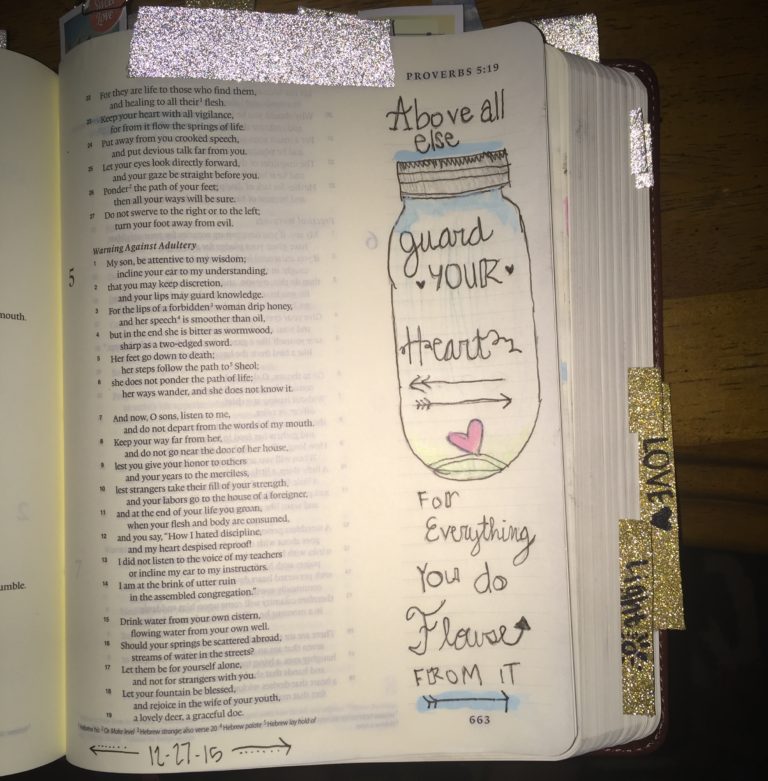 Sweet
Love
PROVERBS 5:19
mouth.
umble.
22 For they are life to those who find them,
and healing to all their¹ flesh.
23 Keep your heart with all vigilance,
for from it flow the springs of life.
24 Put away from you crooked speech,
and put devious talk far from you.
25 Let your eyes look directly forward,
and your gaze be straight before you.
26 Ponder² the path of your feet;
then all your ways will be sure.
27 Do not swerve to the right or to the left;
turn your foot away from evil.
Warning Against Adultery
5
1 My son, be attentive to my wisdom;
incline your ear to my understanding,
2 that you may keep discretion,
and your lips may guard knowledge.
3 For the lips of a forbidden³ woman drip honey,
and her speech⁴ is smoother than oil,
4 but in the end she is bitter as wormwood,
sharp as a two-edged sword.
5 Her feet go down to death;
her steps follow the path to⁵ Sheol;
6 she does not ponder the path of life;
her ways wander, and she does not know it.
7 And now, O sons, listen to me,
and do not depart from the words of my mouth.
8 Keep your way far from her,
and do not go near the door of her house,
9 lest you give your honor to others
and your years to the merciless,
10 lest strangers take their fill of your strength,
and your labors go to the house of a foreigner,
11 and at the end of your life you groan,
when your flesh and body are consumed,
12 and you say, "How I hated discipline,
and my heart despised reproof!
13 I did not listen to the voice of my teachers
or incline my ear to my instructors.
14 I am at the brink of utter ruin
in the assembled congregation."
15 Drink water from your own cistern,
flowing water from your own well.
16 Should your springs be scattered abroad,
streams of water in the streets?
17 Let them be for yourself alone,
and not for strangers with you.
18 Let your fountain be blessed,
and rejoice in the wife of your youth,
19 a lovely deer, a graceful doe.
¹ Hebrew his ² Or Make level ³ Hebrew strange; also verse 20 ⁴ Hebrew palate ⁵ Hebrew lay hold of
12-27-15
Above all
else
guard
YOUR
Heart
For
Everything
You do
Flowse
FROM IT
663
LOVE
Light